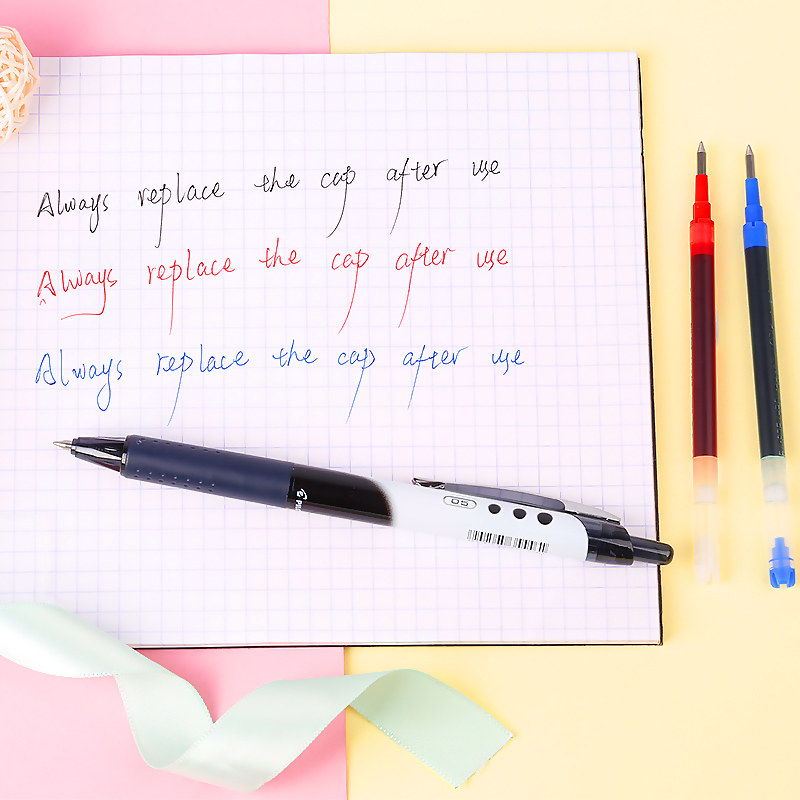 Always replace the cap after use
Always replace the cap after use
Always replace the cap after use
05